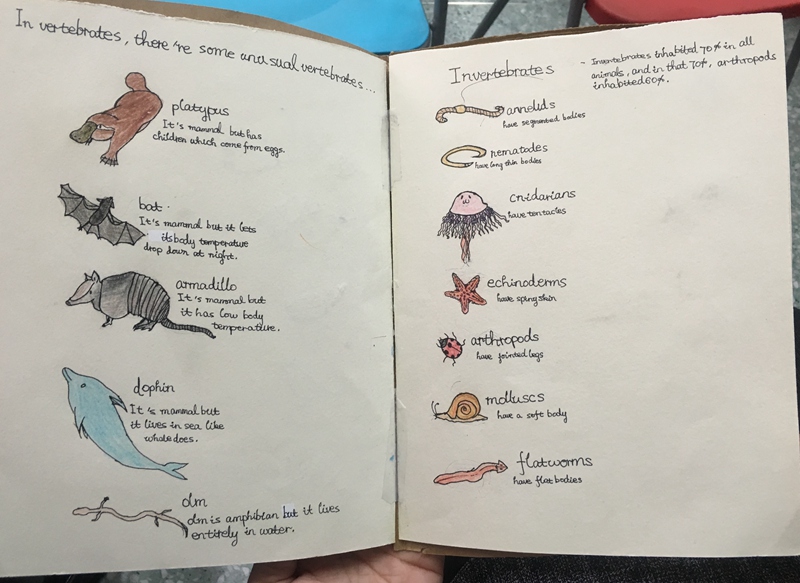 In vertebrates, there're some unusual vertebrates...
platypus
It's mammal but has
children which come from eggs.
bat.
It's mammal but it lets
its body temperature
drop down at night.
armadillo
It's mammal but
it has low body
temperature.
dophin
It's mammal but
it lives in sea like
whale does.
olm
olm is amphibian but it lives
entirely in water.
Invertebrates
- Invertebrates inhabited 70% in all
animals, and in that 70%, arthropods
inhabited 60%.
annelids
have segmented bodies
nematodes
have long thin bodies
cnidarians
have tentacles
echinoderms
have spiny skin
arthropods
have jointed legs
molluscs
have a soft body
flatworms
have flat bodies